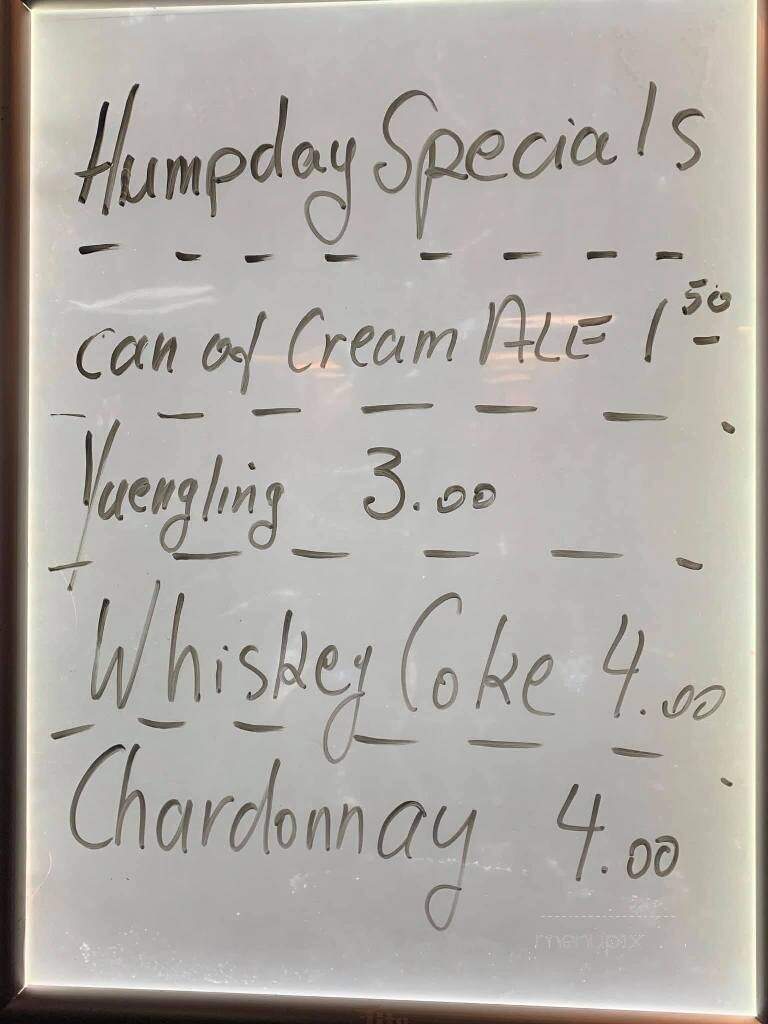 Humpday Specials
can of Cream ALE 1 50
Yuengling 3.00
Whiskey Coke 4.00
Chardonnay 4.00
menupix